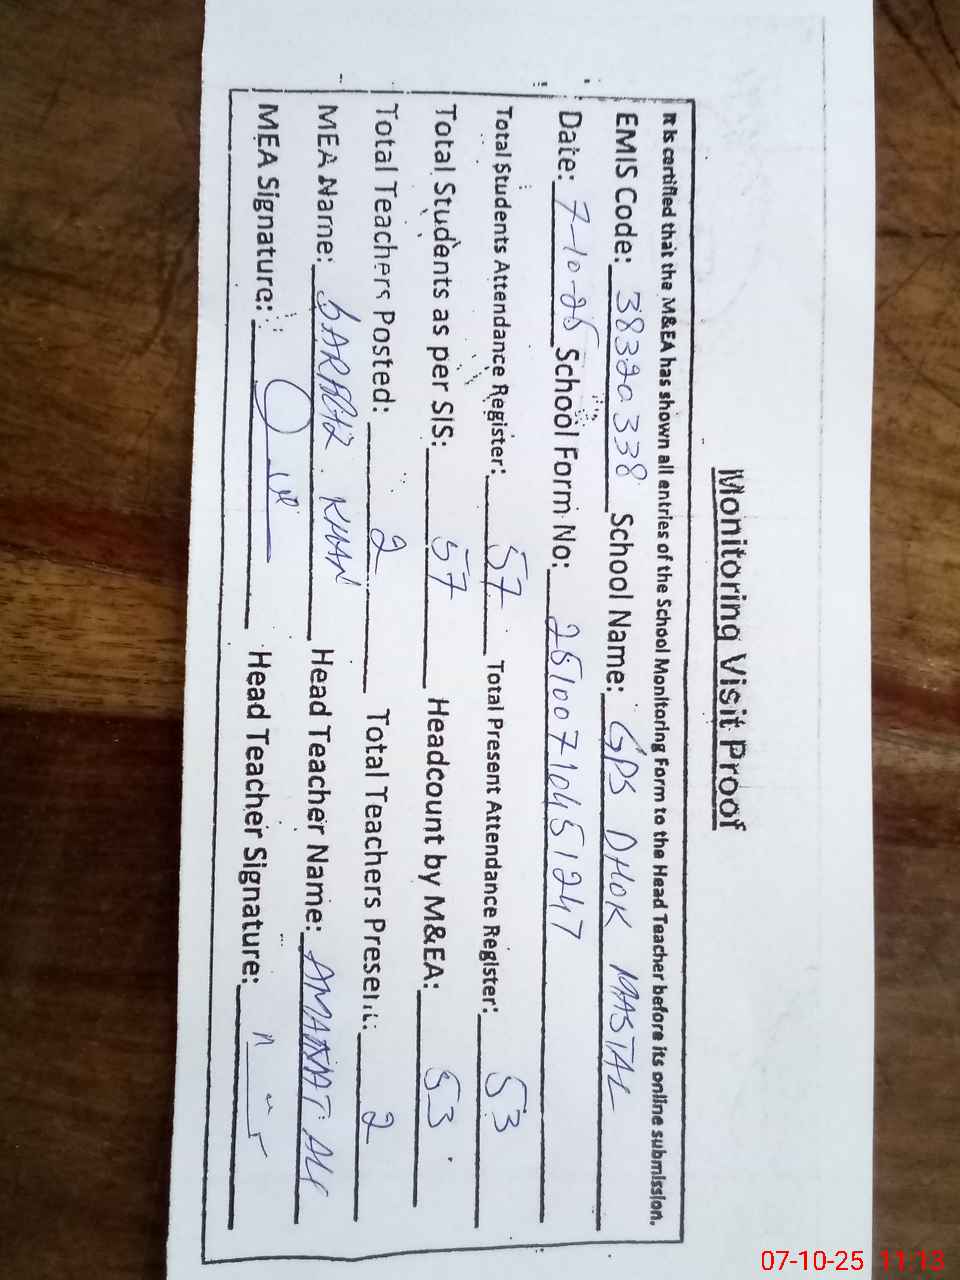 Monitoring Visit Proof
It is certified that the M&EA has shown all entries of the School Monitoring Form to the Head Teacher before its online submission.
EMIS Code: 38320338 School Name: GPS DHOK MASTAL
Date: 7-10-25 School Form No: 25100710451247
Total Students Attendance Register: 57 Total Present Attendance Register: 53
Total Students as per SIS: 57 Headcount by M&EA: 53
Total Teachers Posted: 2 Total Teachers Present: 2
MEA Name: KHAN Head Teacher Name: AMANAT ALI
MEA Signature: Head Teacher Signature:
07-10-25 11:13